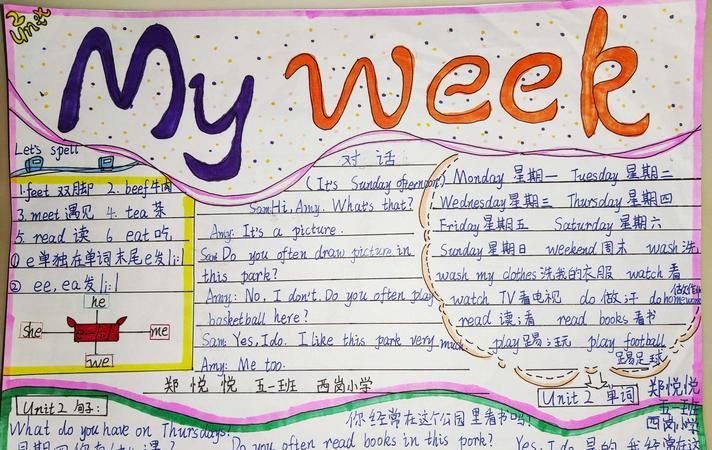 2
Unit
My Week
Let's spell
1.feet 双脚 2. beef牛肉
3. meet 遇见 4. tea 茶
5. read 读 6 eat 吃
① e单独在单词末尾e发/i:/
② ee, ea 发/i:/
he
she
me
we
对 话
(It's Sunday afternoon)
Sam:Hi, Amy. What's that?
Amy: It's a picture.
Sam: Do you often draw picture in
this park?
Amy: No, I don't. Do you often play
basketball here?
Sam: Yes, I do. I like this park very much.
Amy: Me too.
Monday 星期一 Tuesday 星期二
Wednesday 星期三 Thursday 星期四
Friday 星期五 Saturday 星期六
Sunday 星期日 weekend 周末 wash 洗
wash my clothes 洗我的衣服 watch 看
watch TV 看电视 do 做;干 do homework 做作业
read 读;看 read books 看书
play 踢;玩 play football
踢足球
Unit 2 单词
郑 悦 悦 五一班 西岗小学
郑悦悦
五一班
西岗小学
Unit 2 句子:
What do you have on Thursdays?
你经常在这个公园里看书吗?
Do you often read books in this park?
Yes, I do 是的